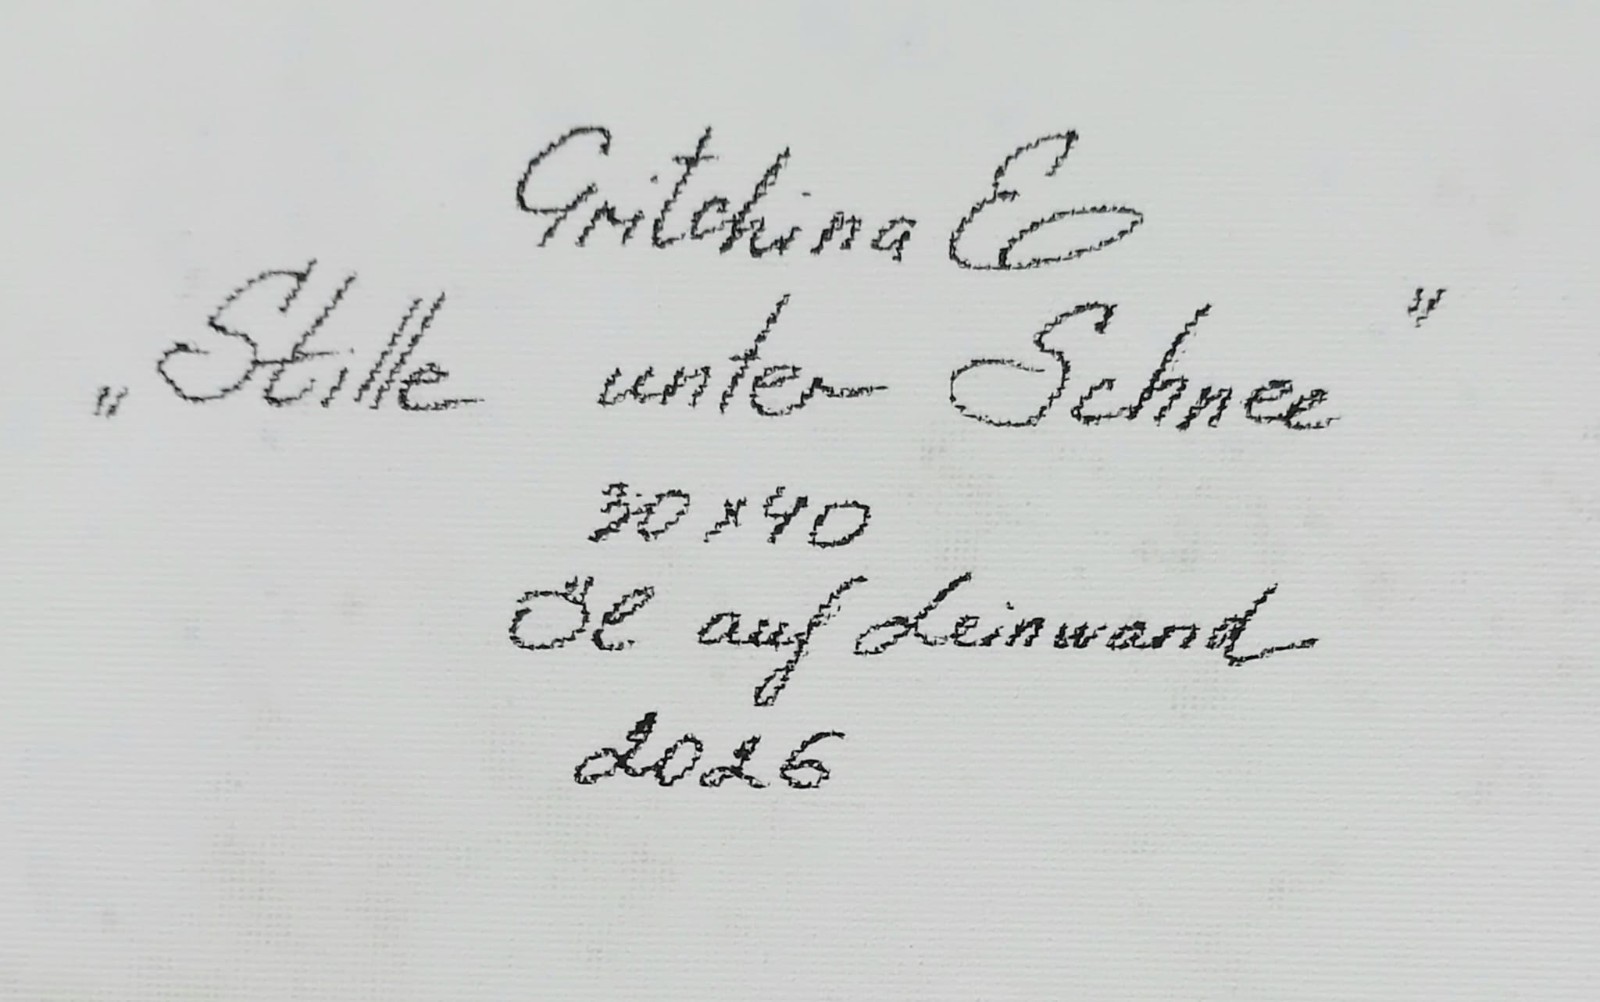 Gritchina E
„Stille unter Schnee"
30x40
Öl auf Leinwand
2026